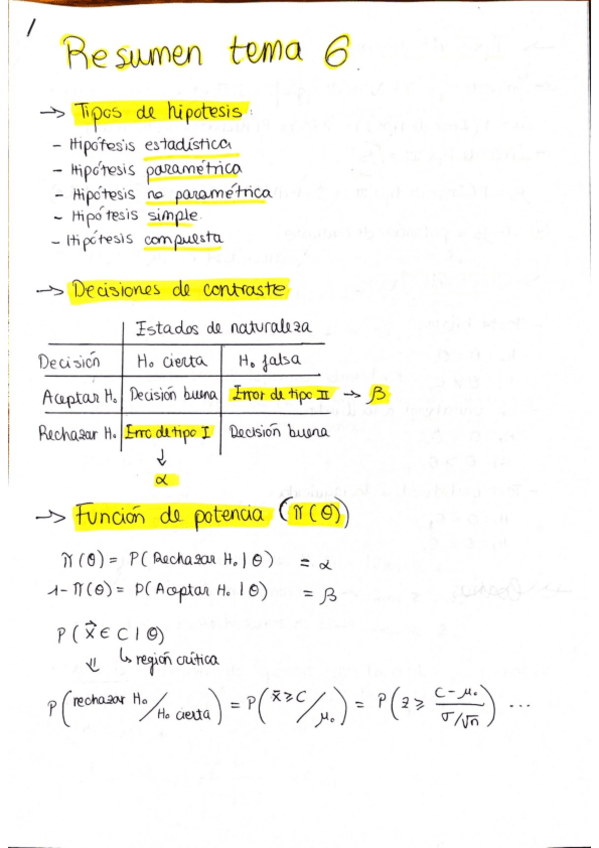 1
Resumen tema 6
→ Tipos de hipotesis:
- Hipótesis estadística
- Hipótesis paramétrica
- Hipótesis no paramétrica
- Hipótesis simple.
- Hipótesis compuesta
→ Decisiones de contraste
Estados de naturaleza
Decisión | H₀ cierta | H₀ falsa
Aceptar H₀ | Decisión buena | Error de tipo II → β
Rechazar H₀ | Erro de tipo I | Decisión buena
↓
α
→ Función de potencia (π(θ))
π(θ) = P(Rechazar H₀ | θ) = α
1-π(θ) = P(Aceptar H₀ | θ) = β
P(x⃗ ∈ C | θ)
⇓ ↳ región crítica
P(rechazar H₀ / H₀ cierta) = P(x̄ ≥ C / μ₀) = P(z ≥ (C - μ₀) / (σ/√n)) ...